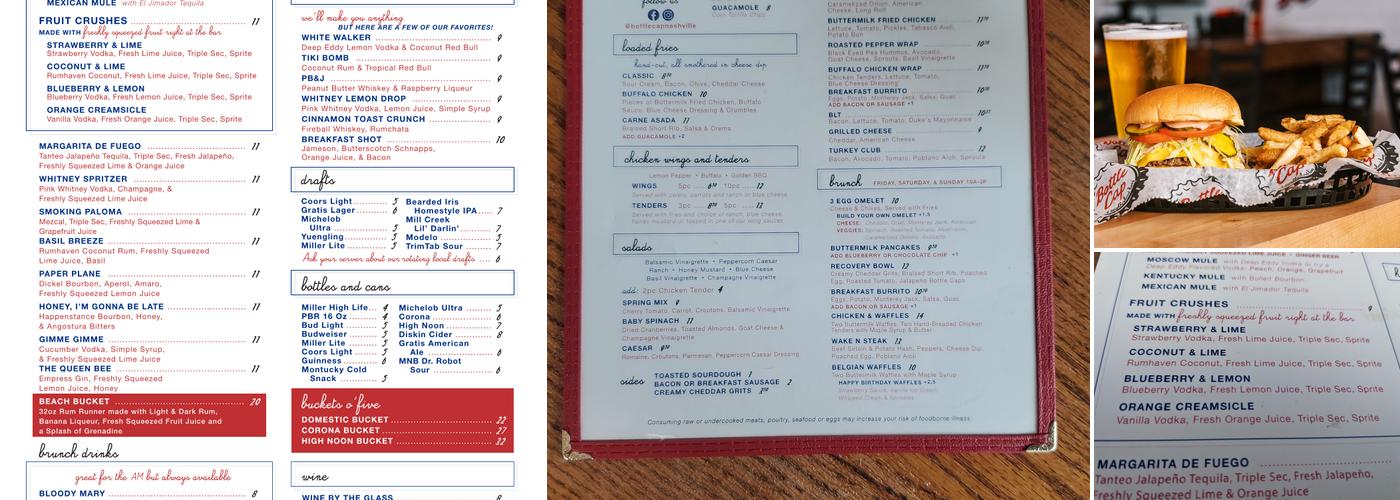 MEXICAN MULE with El Jimador Tequila
FRUIT CRUSHES 11
MADE WITH freshly squeezed fruit right at the bar
STRAWBERRY & LIME
Strawberry Vodka, Fresh Lime Juice, Triple Sec, Sprite
COCONUT & LIME
Rumhaven Coconut, Fresh Lime Juice, Triple Sec, Sprite
BLUEBERRY & LEMON
Blueberry Vodka, Fresh Lemon Juice, Triple Sec, Sprite
ORANGE CREAMSICLE
Vanilla Vodka, Fresh Orange Juice, Triple Sec, Sprite
MARGARITA DE FUEGO 11
Tanteo Jalapeño Tequila, Triple Sec, Fresh Jalapeño,
Freshly Squeezed Lime & Orange Juice
WHITNEY SPRITZER 11
Pink Whitney Vodka, Champagne, &
Freshly Squeezed Lime Juice
SMOKING PALOMA 11
Mezcal, Triple Sec, Freshly Squeezed Lime &
Grapefruit Juice
BASIL BREEZE 11
Rumhaven Coconut Rum, Freshly Squeezed
Lime Juice, Basil
PAPER PLANE 11
Dickel Bourbon, Aperol, Amaro,
Freshly Squeezed Lemon Juice
HONEY, I'M GONNA BE LATE 11
Happenstance Bourbon, Honey,
& Angostura Bitters
GIMME GIMME 11
Cucumber Vodka, Simple Syrup,
& Freshly Squeezed Lime Juice
THE QUEEN BEE 11
Empress Gin, Freshly Squeezed
Lemon Juice, Honey
BEACH BUCKET 20
32oz Rum Runner made with Light & Dark Rum,
Banana Liqueur, Fresh Squeezed Fruit Juice and
a Splash of Grenadine
brunch drinks
great for the AM but always available
BLOODY MARY 8
we'll make you anything
BUT HERE ARE A FEW OF OUR FAVORITES!
WHITE WALKER 9
Deep Eddy Lemon Vodka & Coconut Red Bull
TIKI BOMB 9
Coconut Rum & Tropical Red Bull
PB&J 9
Peanut Butter Whiskey & Raspberry Liqueur
WHITNEY LEMON DROP 9
Pink Whitney Vodka, Lemon Juice, Simple Syrup
CINNAMON TOAST CRUNCH 9
Fireball Whiskey, Rumchata
BREAKFAST SHOT 10
Jameson, Butterscotch Schnapps,
Orange Juice, & Bacon
drafts
Coors Light 5
Gratis Lager 6
Michelob
Ultra 5
Yuengling 5
Miller Lite 5
Bearded Iris
Homestyle IPA 7
Mill Creek
Lil' Darlin' 7
Modelo 5
TrimTab Sour 7
Ask your server about our rotating local drafts 6
bottles and cans
Miller High Life 4
PBR 16 Oz 4
Bud Light 5
Budweiser 5
Miller Lite 5
Coors Light 5
Guinness 6
Montucky Cold
Snack 5
Michelob Ultra 5
Corona 6
High Noon 7
Diskin Cider 8
Gratis American
Ale 6
MNB Dr. Robot
Sour 6
buckets o'five
DOMESTIC BUCKET 22
CORONA BUCKET 27
HIGH NOON BUCKET 32
wine
WINE BY THE GLASS 8
follow us
@bottlecapnashville
GUACAMOLE 8
Corn Tortilla Chips
loaded fries
hand-cut, all smothered in cheese dip
CLASSIC
Sour Cream, Bacon, Chive, Cheddar Cheese
BUFFALO CHICKEN 10
Pieces of Buttermilk Fried Chicken, Buffalo
Sauce, Blue Cheese Dressing & Crumbles
CARNE ASADA 11
Braised Short Rib, Salsa & Crema
ADD GUACAMOLE +2
chicken wings and tenders
Lemon Pepper • Buffalo • Golden BBQ
WINGS 5pc 10pc 12
Served with celery, carrots and ranch or blue cheese
TENDERS 3pc 5pc 12
Served with fries and choice of ranch, blue cheese,
honey mustard or tossed in one of our wing sauces
salads
Balsamic Vinaigrette • Peppercorn Caesar
Ranch • Honey Mustard • Blue Cheese
Basil Vinaigrette • Chipotle Vinaigrette
add: 2pc Chicken Tender 4
SPRING MIX 9
Cherry Tomato, Carrot, Croutons, Balsamic Vinaigrette
BABY SPINACH 11
Dried Cranberries, Toasted Almonds, Goat Cheese &
Champagne Vinaigrette
CAESAR
Romaine, Croutons, Parmesan, Peppercorn Caesar Dressing
sides
TOASTED SOURDOUGH 1
BACON OR BREAKFAST SAUSAGE 2
CREAMY CHEDDAR GRITS
Caramelized Onion, American
Cheese, Long Roll
BUTTERMILK FRIED CHICKEN
Lettuce, Tomato, Pickles, Tabasco Aioli,
Potato Bun
ROASTED PEPPER WRAP
Black Eyed Pea Hummus, Avocado,
Goat Cheese, Sprouts, Basil Vinaigrette
BUFFALO CHICKEN WRAP
Chicken Tenders, Lettuce, Tomato,
Blue Cheese Dressing
BREAKFAST BURRITO
Eggs, Potato, Monterey Jack, Salsa, Guac
ADD BACON OR SAUSAGE +1
BLT
Bacon, Lettuce, Tomato, Duke's Mayonnaise
GRILLED CHEESE 9
Cheddar, American Cheese
TURKEY CLUB 12
Bacon, Avocado, Tomato, Poblano Aioli, Sprouts
brunch FRIDAY, SATURDAY, & SUNDAY 10A-2P
3 EGG OMELET 10
Cheese & Chives, Served with Fries
BUILD YOUR OWN OMELET +1.5
CHEESE: Cheddar, Goat, Monterey Jack, American
VEGGIES: Spinach, Roasted Tomato, Mushroom,
Caramelized Onion, Avocado
BUTTERMILK PANCAKES
ADD BLUEBERRY OR CHOCOLATE CHIP +1
RECOVERY BOWL 13
Creamy Cheddar Grits, Braised Short Rib, Poached
Egg, Roasted Tomato, Jalapeño Bottle Caps
BREAKFAST BURRITO
Eggs, Potato, Monterey Jack, Salsa, Guac
ADD BACON OR SAUSAGE +1
CHICKEN & WAFFLES 14
Two Buttermilk Waffles, Two Hand-Breaded Chicken
Tenders with Maple Syrup & Butter
WAKE N STEAK 12
Beef Sirloin & Potato Hash, Peppers, Cheese Dip,
Poached Egg, Poblano Aioli
BELGIAN WAFFLES 10
Two Buttermilk Waffles with Maple Syrup
HAPPY BIRTHDAY WAFFLES +2.5
Strawberry Sauce, Vanilla Ice Cream,
Whipped Cream & Sprinkles
Consuming raw or undercooked meats, poultry, seafood or eggs may increase your risk of foodborne illness.
Bottle Cap
Bottle Cap
MOSCOW MULE with Deep Eddy Vodka or try a
Deep Eddy Flavored Vodka: Peach, Orange, Grapefruit
KENTUCKY MULE with Bulleit Bourbon
MEXICAN MULE with El Jimador Tequila
FRUIT CRUSHES 9
MADE WITH freshly squeezed fruit right at the bar
STRAWBERRY & LIME
Strawberry Vodka, Fresh Lime Juice, Triple Sec, Sprite
COCONUT & LIME
Rumhaven Coconut, Fresh Lime Juice, Triple Sec, Sprite
BLUEBERRY & LEMON
Blueberry Vodka, Fresh Lemon Juice, Triple Sec, Sprite
ORANGE CREAMSICLE
Vanilla Vodka, Fresh Orange Juice, Triple Sec, Sprite
MARGARITA DE FUEGO
Tanteo Jalapeño Tequila, Triple Sec, Fresh Jalapeño
Freshly Squeezed Lime & Orange Juice